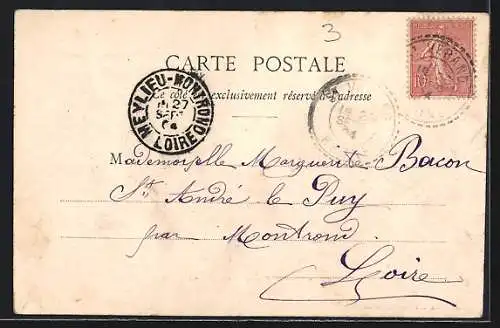 3
CARTE POSTALE
Ce côté exclusivement réservé à l'adresse
MEYLIEU-MONTROND
27
SEPT
04
LOIRE
Mademoiselle Marguerite Bacon
St André le Puy
par Montrond
Loire